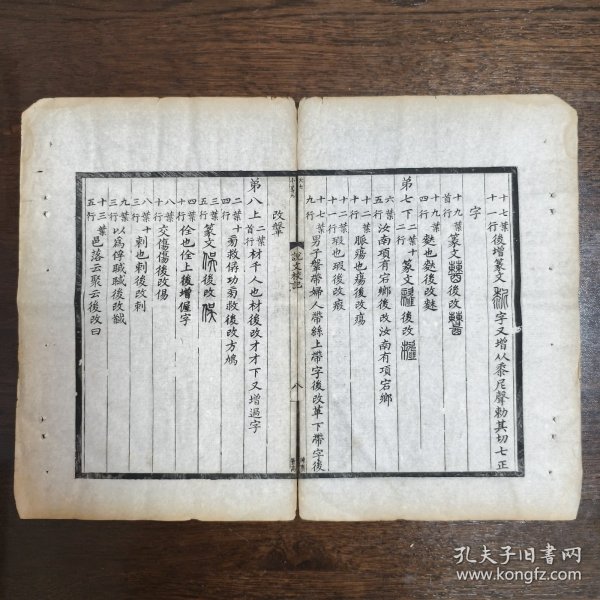 十七葉十一行 後增篆文 字又增从黍尼聲勅其切七正
字
十九葉首行 篆文 後改
十九葉四行 麩也麩後改麩
弟七下 二葉十二行 篆文 後改
六葉五行 汝南項有宕鄉後改汝南有項宕鄉
十葉十二行 脈瘍也瘍後改瘍
十二葉十一行 瘕也瑕後改瘕
十七葉九行 男子鞶帶婦人帶絲上帶字後改革下帶字後
說文校記
八
改鞶
弟八上 二葉首行 材千人也材後改才才下又增過字
二葉十四行 菊救俙功菊救後改方鳩
三葉十五行 篆文 後改
四葉四行 佺也佺上後增偓字
八葉十八行 交傷傷後改傷
八葉十三行 刺也刺後改刺
九葉三行 以爲俾臧臧後改
十三葉五行 邑落云聚云後改曰
孔夫子旧书网
www.kongfz.com